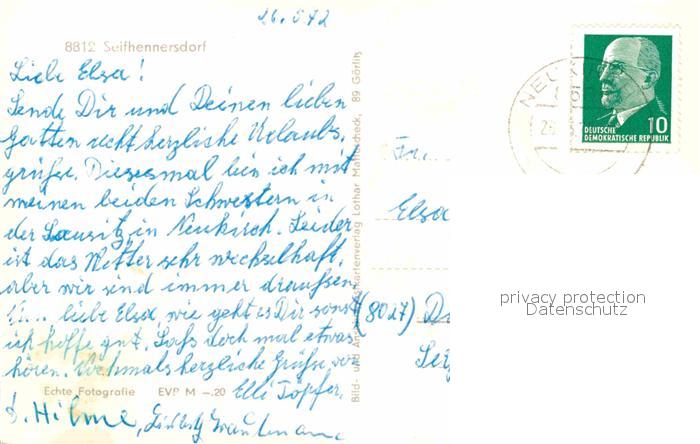 26.5.72
8812 Seifhennersdorf
Liebe Elsa!
Sende Dir und Deinen lieben
Gatten recht herzliche Urlaubs,
grüße. Dieses mal bin ich mit
meinen beiden Schwestern in
der Lausitz in Neukirch. Leider
ist das Wetter sehr wechselhaft,
aber wir sind immer draussen
liebe Elsa, wie geht es Dir sonst
ich hoffe gut. Laß doch mal etwas
hören. Nochmals herzliche Grüße von
Elli Töpfer,
Echte Fotografie EVP M –.20
Hilme,
Bild- und Ansichtskartenverlag Lothar Mattescheck, 89 Görlitz
NEU
DEUTSCHE
DEMOKRATISCHE REPUBLIK
10
Fr..
Elsa
(8027)
privacy protection
Datenschutz